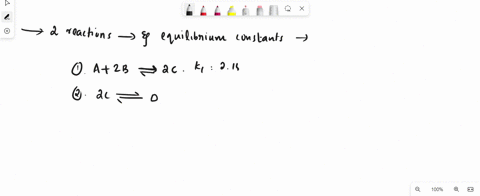 → 2 reactions → & equilibrium constants →
① A + 2B ⇌ 2C. K₁ : 2.15
② 2C ⇌ D
100%